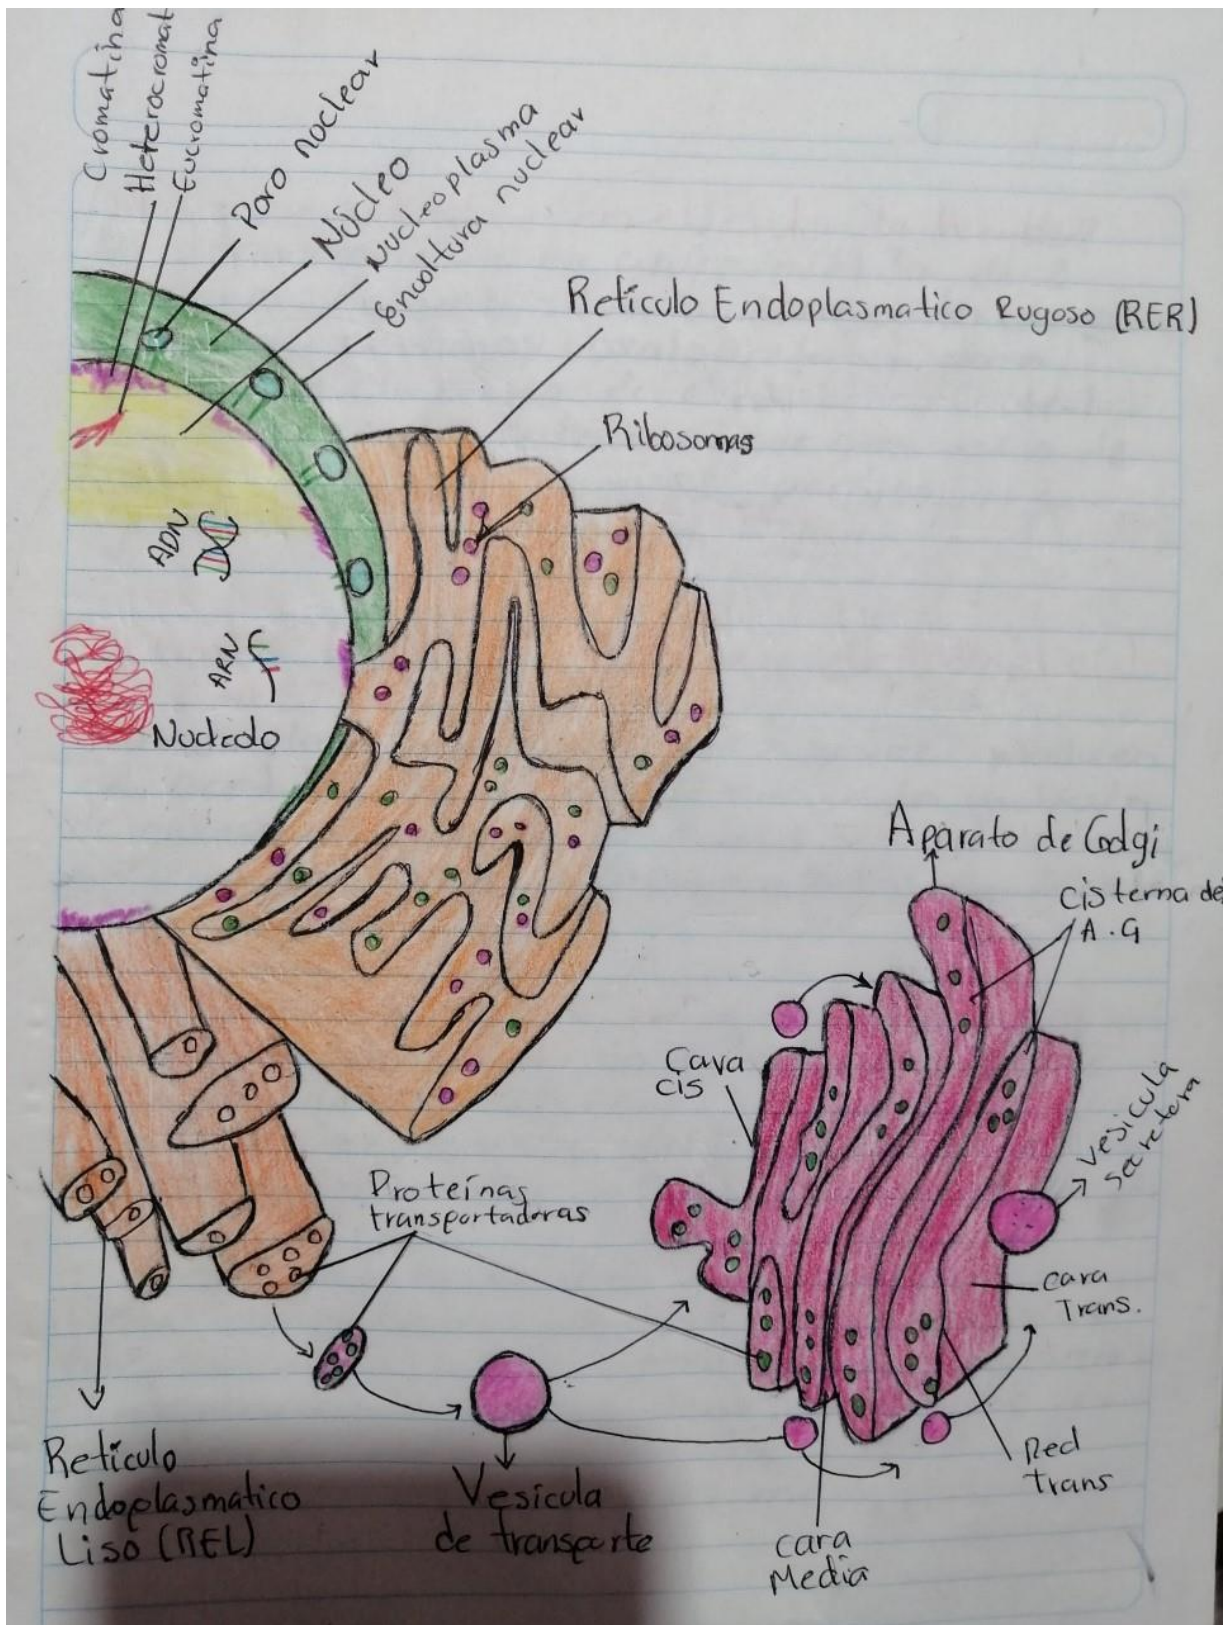 Cromatina
Heterocromat
Eucromatina
Poro nuclear
Núcleo
Nucleoplasma
Envoltura nuclear
Retículo Endoplasmatico Rugoso (RER)
Ribosomas
ADN
ARN
Nucleolo
Aparato de Golgi
cisterna del
A.G
Cara
cis
Vesicula
secretora
Proteínas
transportadoras
cara
Trans.
Red
trans
cara
Media
Vesícula
de transporte
Retículo
Endoplasmatico
Liso (REL)